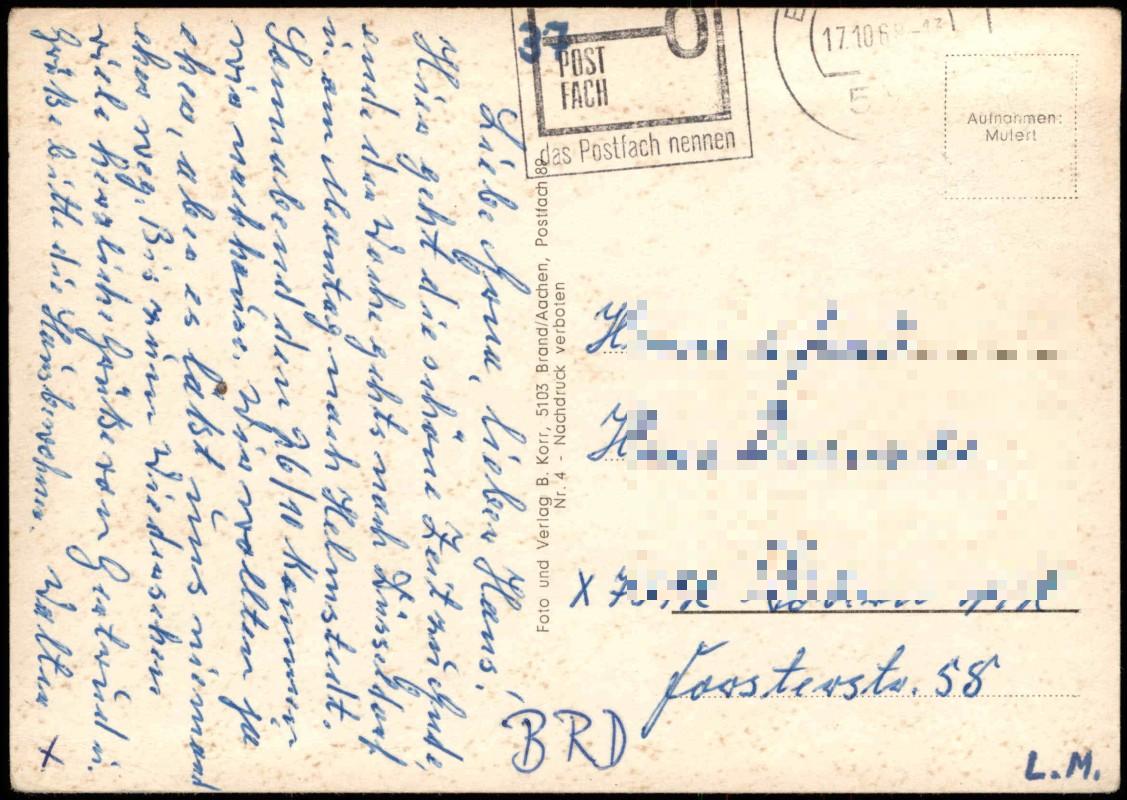 Liebe Hona, lieber Hans!
Hier geht die schöne Zeit zu Ende,
ende der Woche gehts nach Düsseldorf
u. am Montag nach Helmstedt.
Sonnabend den 26/10 kommen
wir nachhause. Wir wollten ja
eher, aber es läßt uns niemand
eher weg. Bis zum Wiedersehen
viele herzliche Grüße von Gertrud u.
Walter. x
Grüße bitte die Hausbewohner.
37
POST
FACH
das Postfach nennen
17.10.68-13
5
Aufnahmen:
Mutert
Foto und Verlag B. Korr, 5103 Brand/Aachen, Postfach 89
Nr. 4 - Nachdruck verboten
H.
H
X 7
Forsterstr. 58
BRD
L.M.